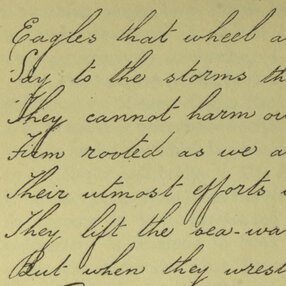 Eagles that wheel a
Say to the storms th
They cannot harm ou
Firm rooted as we a
Their utmost efforts
They lift the sea-wa
But when they wrest